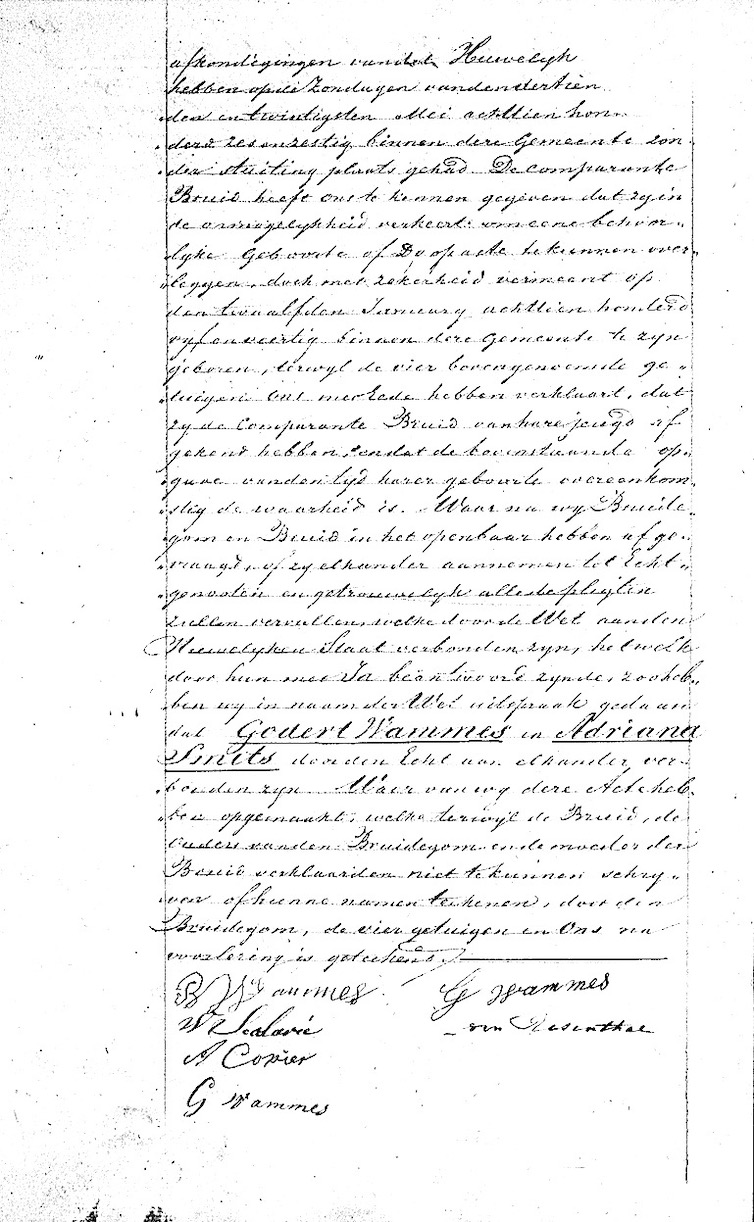 afkondigingen van dat Huwelyk
hebben op de Zondagen van den dertien
den en twintigsten Mei achttien hon„
„derd zesenzestig binnen dere Gemeente zon„
„der stuiting plaats gehad. De comparante
Bruid heeft ons te kennen gegeven dat zy in
de onmogelykheid verkeert om eene behoor„
„lyke Geboorte of Doopacte te kunnen over„
„leggen, doch met zekerheid vermeent op
den twaalfden January achttien honderd
vyfenveertig binnen dere Gemeente te zyn
geboren, terwyl de vier bovengenoemde ge„
„tuigen ons mede hebben verklaard, dat
zy de Comparante Bruid van hare jeugd af
gekend hebben, en dat de bovenstaande op„
„gave van den tyd harer geboorte overeenkom„
„stig de waarheid is. Waar na wy Bruide„
„gom en Bruid in het openbaar hebben afge„
„vraagd, of zy elkander aannemen tot Echt„
„genooten en getrouwelyk alle de pligten
zullen vervullen, welke door de Wet aan den
Huwelyken Staat verbonden zyn, het welk
door hun met Ja beantwoord zynde, zoo heb„
„ben wy in naam der Wet uitspraak gedaan
dat Godert Wammes en Adriana
Smits door den Echt aan elkander ver„
„bonden zyn. Waar van wy dere Acte heb„
„ben opgemaakt, welke terwyl de Bruid, de
Ouders van den Bruidegom en de moeder der
Bruid verklaarden niet te kunnen schry„
„ven of hunne namen teekenen, door den
Bruidegom, de vier getuigen en Ons na
voorlezing is geteekend.
B Wammes G Wammes
W van Rosenthal
A Copier
G Wammes